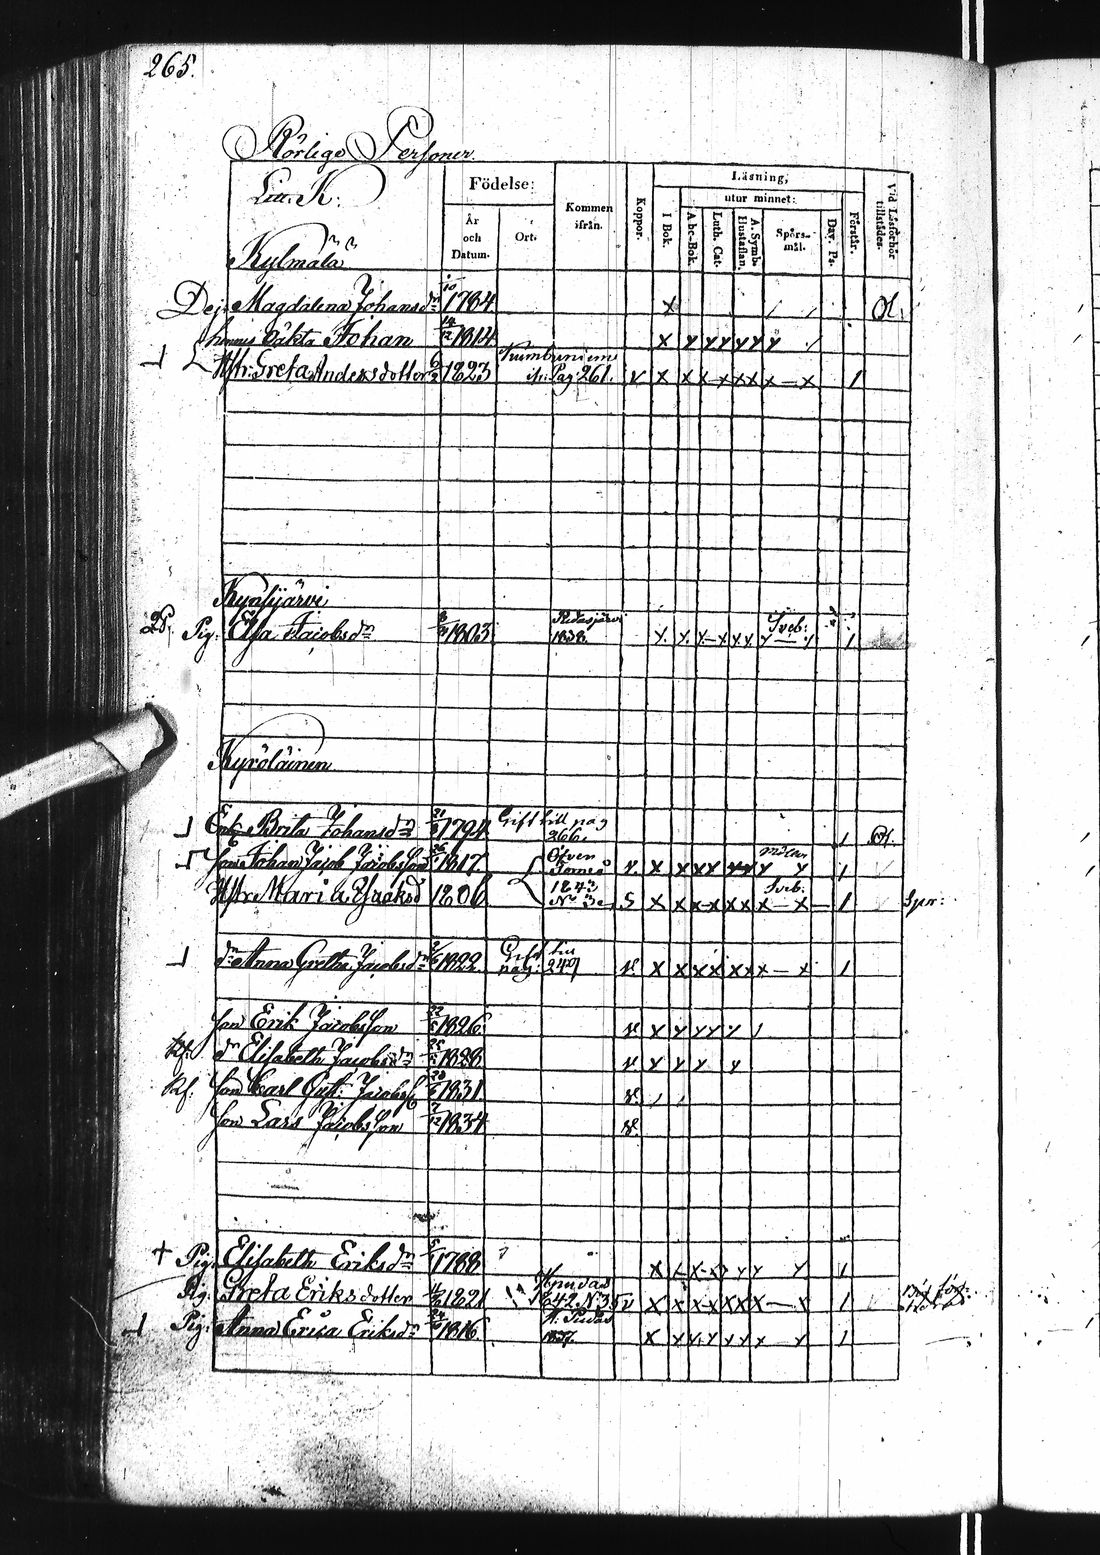 265.
Rörlige Personer
Litt. K:
Födelse:
År och Datum.
Ort.
Kommen ifrån.
Koppor.
Läsning,
I Bok.
utur minnet:
Abc-Bok.
Luth. Cat.
A. Symb. Hustaflan.
Spörs-mål.
Dav. Ps.
Förstår.
Vid Läsförhör tillstädes.
Kylmälä
Dej. Magdalena Johansdr 1784 x
hennes oäkta Johan 1814 x
Hstr. Greta Andersdotter 1823 Pag: 261. v x x x - x x x x - x 1
Kynsijärvi
Pig. Elsa Jacobsdr 1803 1838. Sveb: 1
Kyröläinen
Enk. Brita Johansdr 1794 Gift till pag 266. 1
Son Johan Jacob Jacobsson 1817 Öfver Torneå v. x 1
Hstr Maria Isacksd 1806 1843 Sveb: S x x x - x x x x - x - 1 Spr:
dr Anna Greta Jacobsdr 1822 Gift till pag: 249 v x x x x x x x - x 1
Son Erik Jacobsson 1826 v x
dr Elisabeth Jacobsdr 1828 v
Son Carl Gust. Jacobss 1831 v.
Son Lars Jacobsson 1834 v.
+ Pig. Elisabeth Eriksdr 1788 x 1
Pig. Greta Eriksdotter 1821 1842. N:35 v x x x - x x x x - x 1
Pig: Anna Erica Eriksdr 1816 1837. x 1